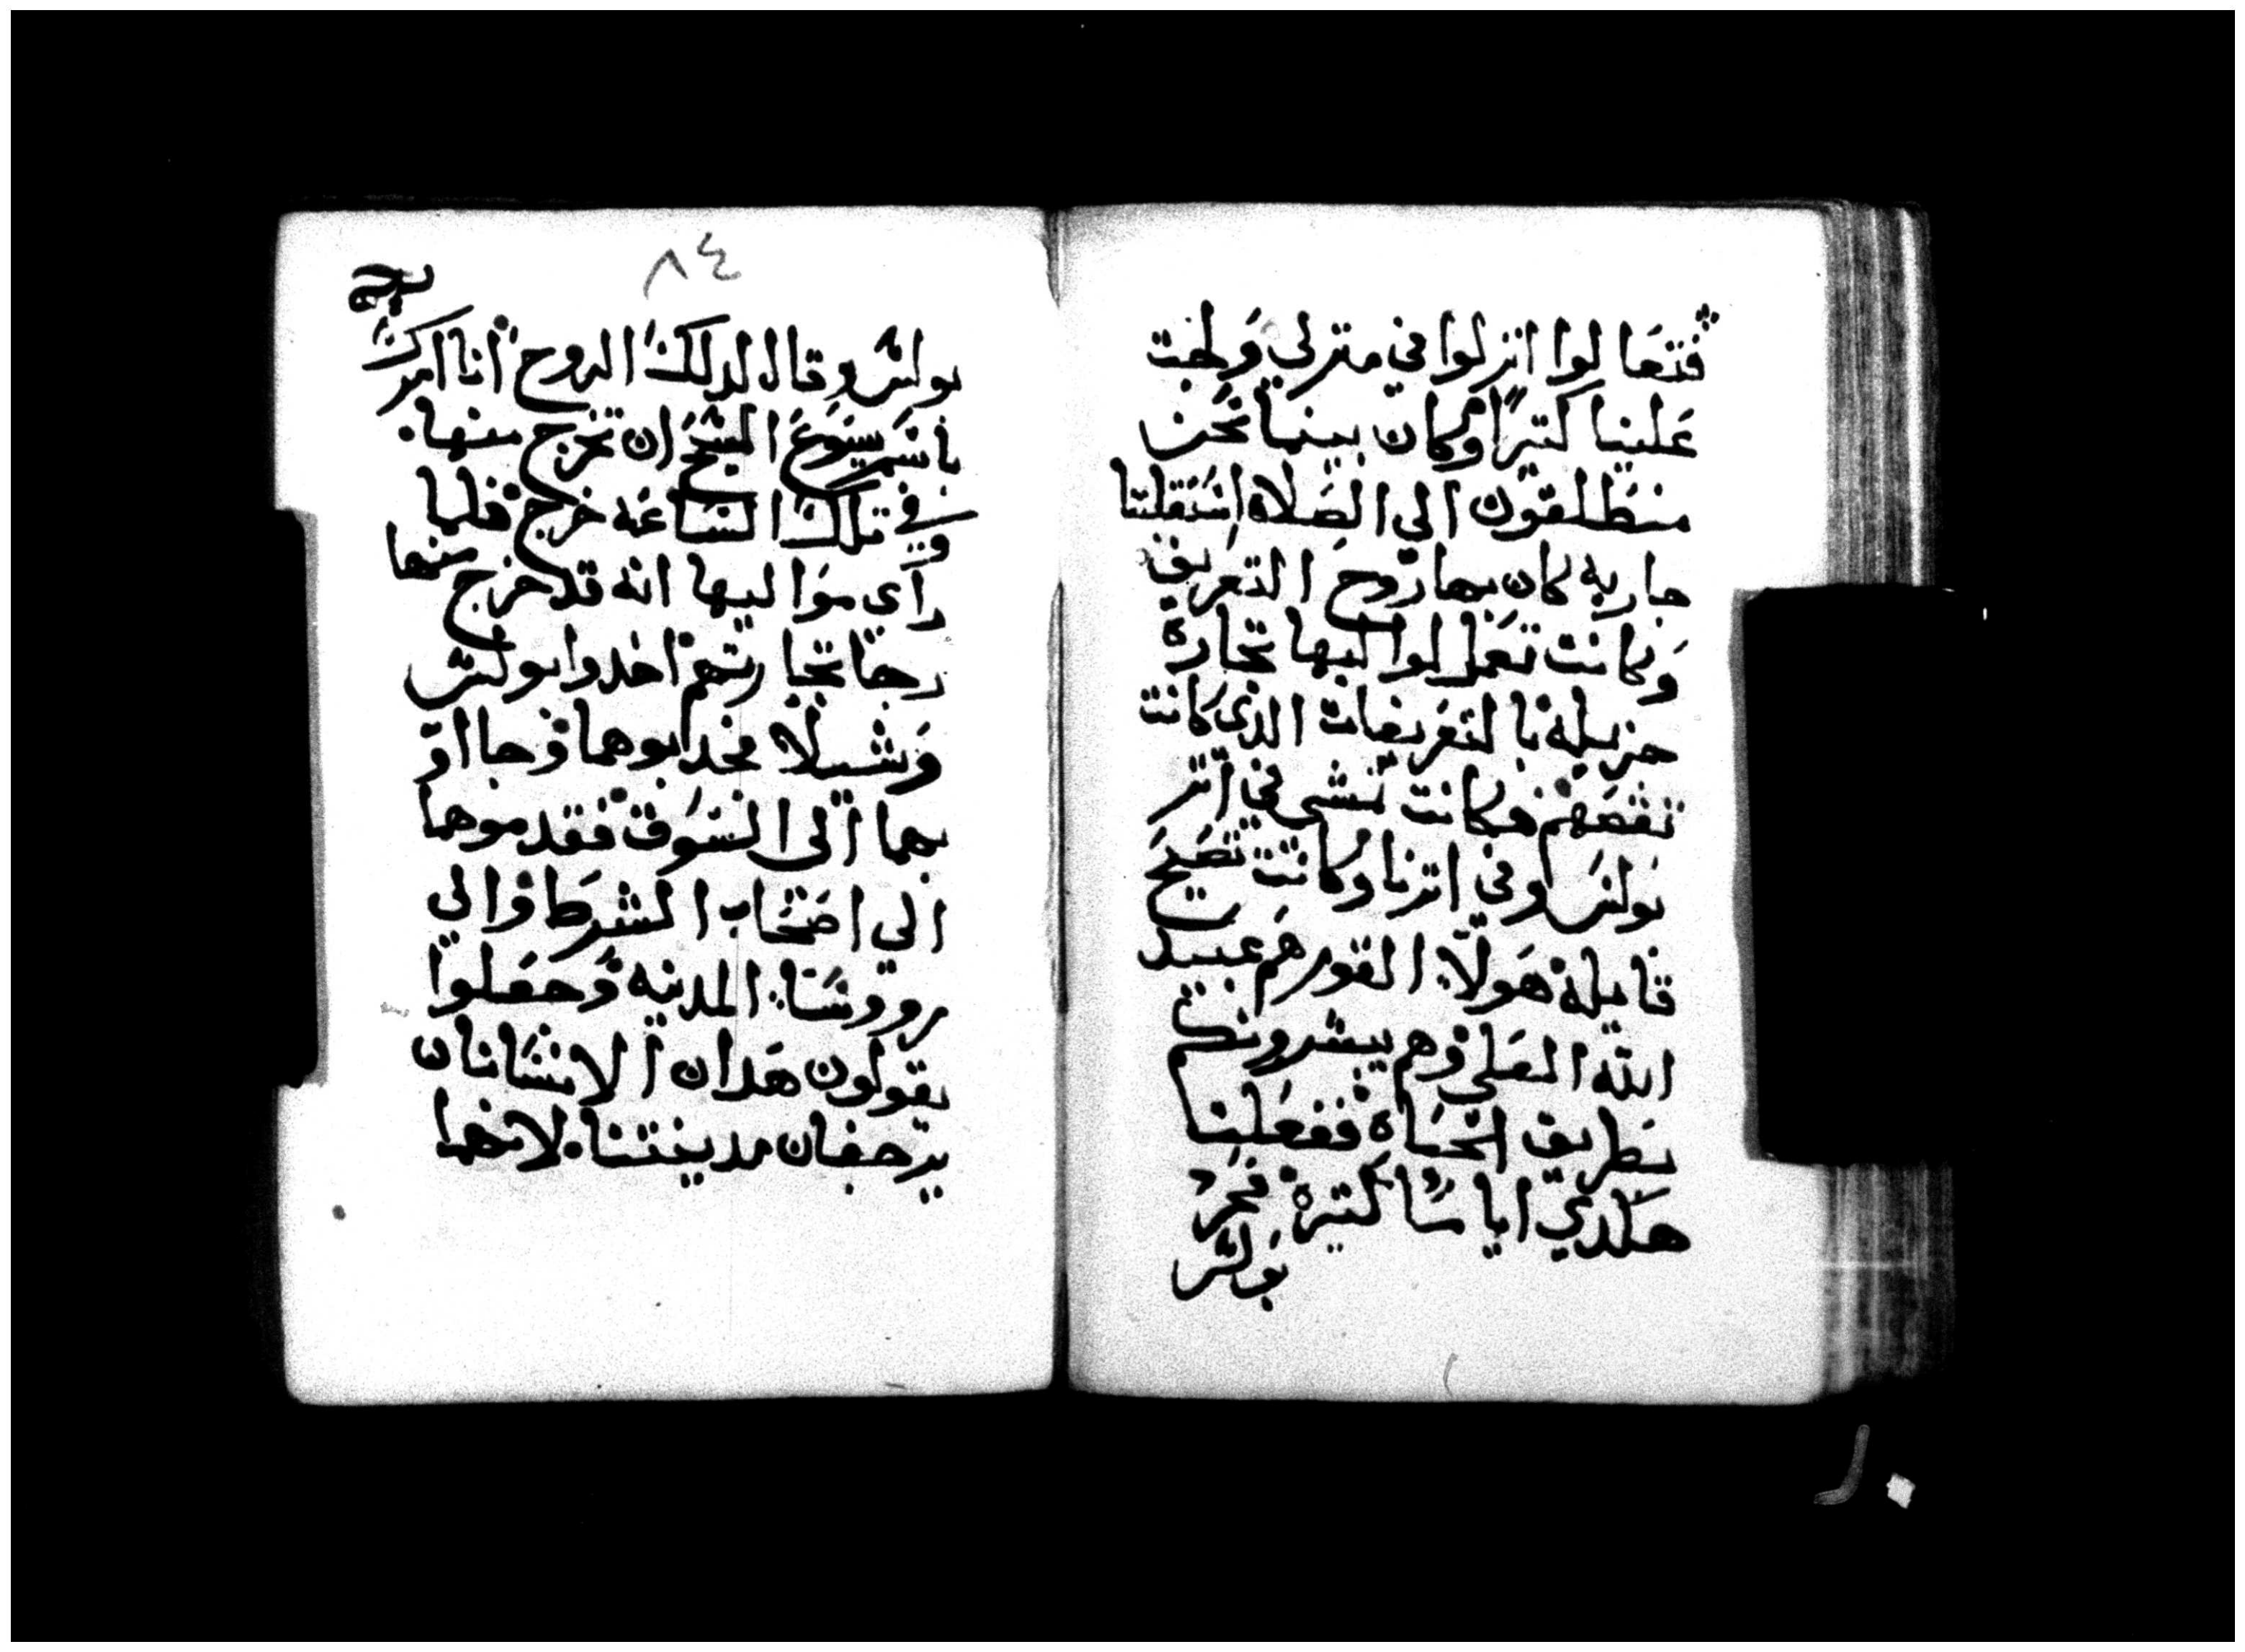 فتعالوا انزلوا في منزلي ولجت
علينا كثيرًا وكان بينما نحن
منطلقون الي الصلاه استقبلتنا
جاريه كان بها روح التعريف
وكانت تعمل لمواليها تجاره
جزيله بالتعريفات الذي كانت
تقصهم فكانت تمشي في اثر
بولس وفي اثرنا وكانت تصيح
قايله هولا القوم هم عبيد
الله العلي وهم يبشرونكم
بطريق الحياه ففعلت
هكذي اياما كثيره فحرد
بولس
٨٤
بولس وقال لدلك الروح انا امرك
باسم يسوع المسيح ان تخرج منها
وفي تلك الساعه خرج فلما
راي مواليها انه قد خرج منها
رجا تجارتهم اخدوا بولس
وشيلا فجدبوهما وجااو
بهما الى السوق فقدموهما
الي اصحاب الشرط والي
رووسا المدينه وجعلوا
يقولون هدان الانسانان
يرجفان مدينتنا لانهما